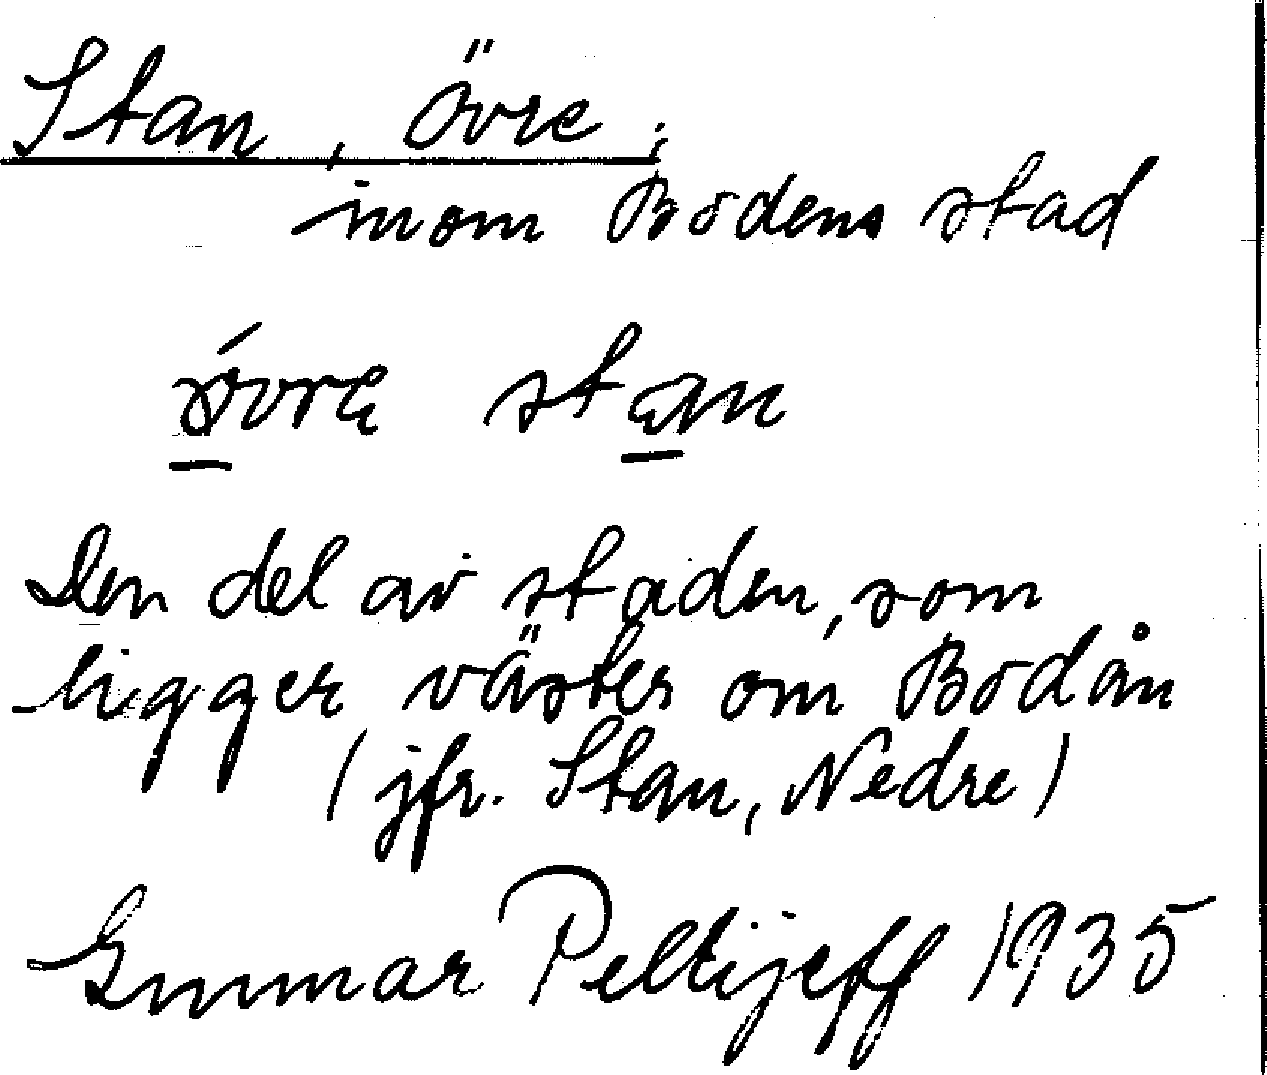 Stan, Övre;
inom Bodens stad
stan
Den del av staden, som
ligger väster om Bodån
(jfr. Stan, Nedre)
Gunnar Pellijeff 1935